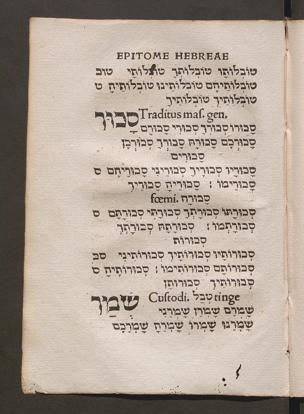 EPITOME HEBREAE
טוֹבְלוֹתוֹ טוֹבְלוֹתֶךָ טוֹבְלוֹתַי טוֹב
טוֹבְלוֹתֵיהֶם טוֹבְלוֹתֵינוּ טוֹבְלוֹתֶיהָ ט
טוֹבְלוֹתַיִךְ טוֹבְלוֹתֵיךְ
סָבוּר Traditus mas. gen.
סְבוּרוֹ סְבוּרְךָ סְבוּרִי סְבוּרָם
סְבוּרְכֶם סְבוּרָהּ סְבוּרֵךְ סְבוּרְכֶן
סְבוּרִים
סְבוּרָיו סְבוּרֶיךָ סְבוּרֵינִי סְבוּרֵיהֶם ס
סְבוּרֵימוֹ : סְבוּרֶיהָ סְבוּרַיִךְ
fœmi. סְבוּרָה
סְבוּרָתוֹ סְבוּרָתְךָ סְבוּרָתִי סְבוּרָתָם ס
סְבוּרָתְמוֹ : סְבוּרָתָהּ סְבוּרָתֵךְ
סְבוּרוֹת
סְבוּרוֹתָיו סְבוּרוֹתֶיךָ סְבוּרוֹתֵינִי סב
סְבוּרוֹתָם סְבוּרוֹתֵימוֹ : סְבוּרוֹתֶיהָ ס
סְבוּרוֹתַיִךְ סְבוּרוֹתָן
שְׁמֹר Custodi. טְבֹל tinge
שָׁמְרֵם שָׁמְרֵן שָׁמְרֵנִי
שָׁמְרֵנוּ שָׁמְרוֹ שָׁמְרָהּ שָׁמְרְכֶם